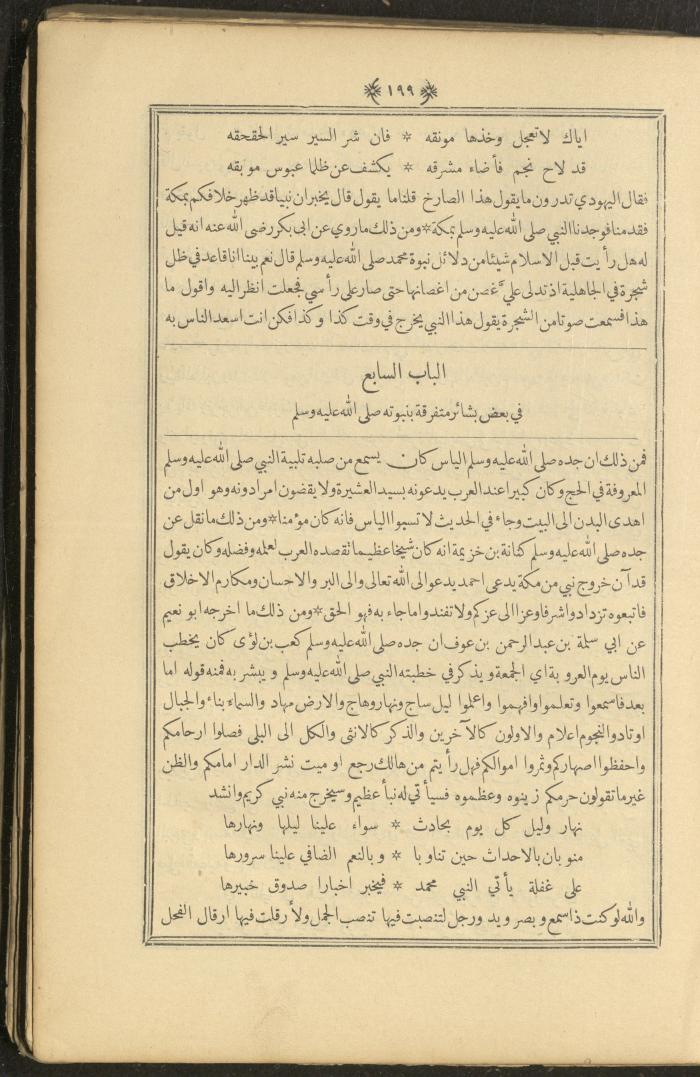 ١٩٩
اياك لا تعجل وخذها مونقه * فان شر السير سير الحقحقه
قد لاح نجم فأضاء مشرقه * يكشف عن ظلما عبوس موبقه
فقال اليهودي تدرون ما يقول هذا الصارخ قلنا ما يقول قال يخبر ان نبيا قد ظهر خلافكم بمكة
فقدمنا فوجدنا النبي صلى الله عليه وسلم بمكة * ومن ذلك ما روي عن ابى بكر رضى الله عنه انه قيل
له هل رأيت قبل الاسلام شيئا من دلائل نبوة محمد صلى الله عليه وسلم قال نعم بينا انا قاعد في ظل
شجرة في الجاهلية اذ تدلى عليّ غصن من اغصانها حتى صار على رأسي فجعلت انظر اليه واقول ما
هذا فسمعت صوتا من الشجرة يقول هذا النبي يخرج في وقت كذا وكذا فكن انت اسعد الناس به
الباب السابع
في بعض بشائر متفرقة بنبوته صلى الله عليه وسلم
فمن ذلك ان جده صلى الله عليه وسلم الياس كان يسمع من صلبه تلبية النبي صلى الله عليه وسلم
المعروفة في الحج وكان كبيرا عند العرب يدعونه بسيد العشيرة ولا يقضون امرا دونه وهو اول من
اهدى البدن الى البيت وجاء في الحديث لا تسبوا الياس فانه كان مؤمنا * ومن ذلك ما نقل عن
جده صلى الله عليه وسلم كنانة بن خزيمة انه كان شيخا عظيما تقصده العرب لعلمه وفضله وكان يقول
قد آن خروج نبي من مكة يدعى احمد يدعو الى الله تعالى والى البر والاحسان ومكارم الاخلاق
فاتبعوه تزدادوا شرفا وعزا الى عزكم ولا تفندوا ما جاء به فهو الحق * ومن ذلك ما اخرجه ابو نعيم
عن ابي سلمة بن عبد الرحمن بن عوف ان جده صلى الله عليه وسلم كعب بن لؤى كان يخطب
الناس يوم العروبة اي الجمعة ويذكر في خطبته النبي صلى الله عليه وسلم ويبشر به فمنه قوله اما
بعد فاسمعوا وتعلموا وافهموا واعلموا ليل ساج ونهار وهاج والارض مهاد والسماء بناء والجبال
اوتاد والنجوم اعلام والاولون كالآخرين والذكر كالانثى والكل الى البلى فصلوا ارحامكم
واحفظوا اصهاركم وثمروا اموالكم فهل رأيتم من هالك رجع او ميت نشر الدار امامكم والظن
غير ما تقولون حرمكم زينوه وعظموه فسيأتي له نبأ عظيم وسيخرج منه نبي كريم وانشد
نهار وليل كل يوم بحادث * سواء علينا ليلها ونهارها
منوبان بالاحداث حين تناوبا * وبالنعم الضافي علينا سرورها
على غفلة يأتي النبي محمد * فيخبر اخبارا صدوق خبيرها
والله لو كنت ذا سمع وبصر ويد ورجل لتنصبت فيها تنصب الجمل ولأرقلت فيها ارقال الفحل